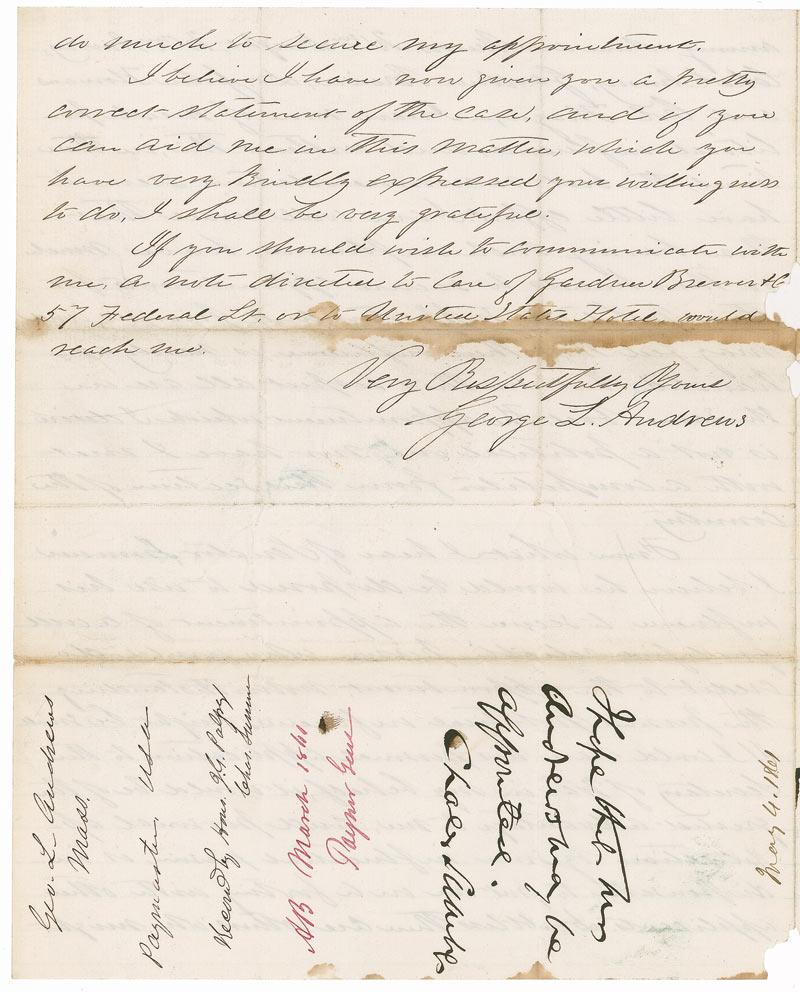 do much to secure my appointment.
I believe I have now given you a pretty
correct statement of the case, and if you
can aid me in this matter, which you
have very kindly expressed your willingness
to do, I shall be very grateful.
If you should wish to communicate with
me, a note directed to care of Gardner Brewer & Co
57 Federal St. or to United States Hotel would
reach me.
Very Respectfully Yours
George L. Andrews
Geo. L. Andrews
Mass.
Paymaster USA
Recom'd by Hons. J. G. Palfrey
Chas. Sumner
AB March 1861
Paymr Genl
I hope that Mr
Andrews may be
appointed.
Charles Sumner
May 4. 1861